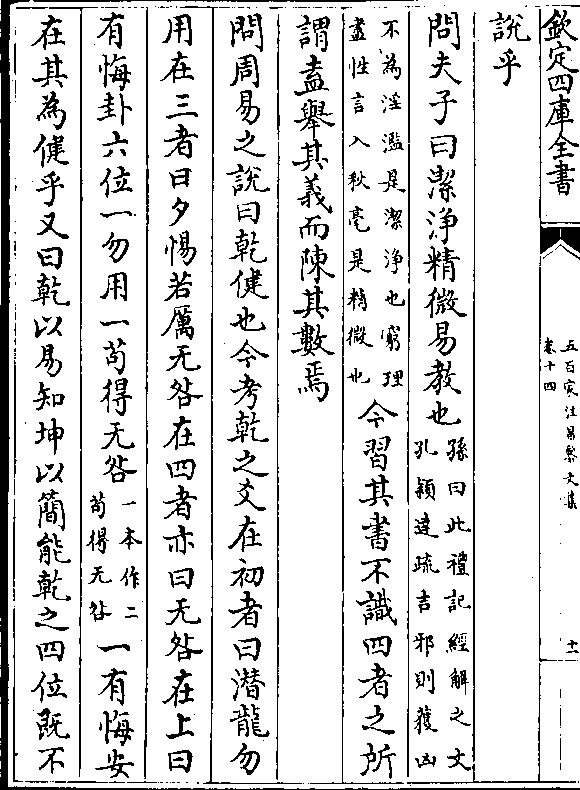 欽定四庫全書
五百家注昌黎文集
卷十四
十一
說乎
問夫子曰潔淨精微易教也孫曰此禮記經解之文孔穎達疏吉邪則獲凶
不為淫濫是潔淨也窮理盡性言入秋毫是精微也今習其書不識四者之所
謂盍舉其義而陳其數焉
問周易之說曰乾健也今考乾之爻在初者曰潛龍勿
用在三者曰夕惕若厲无咎在四者亦曰无咎在上曰
有悔卦六位一勿用一苟得无咎一本作二苟得无咎一有悔安
在其為健乎又曰乾以易知坤以簡能乾之四位既不